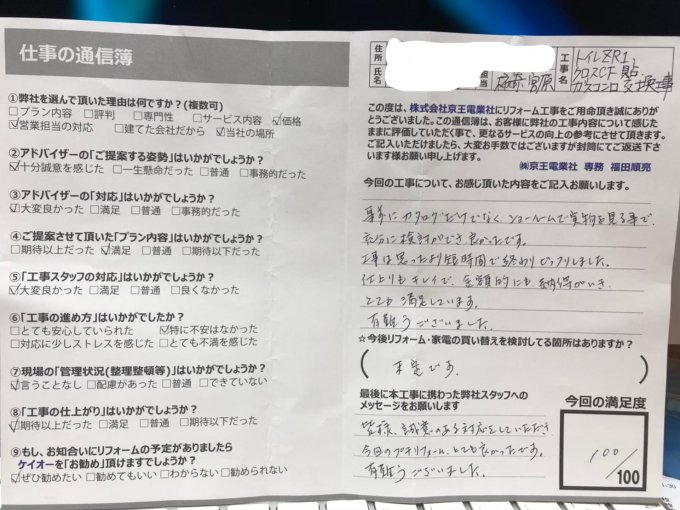 仕事の通信簿
①弊社を選んで頂いた理由は何ですか？(複数可)
□プラン内容 □評判 □専門性 □サービス内容 ☑価格
☑営業担当の対応 □建てた会社だから ☑当社の場所
②アドバイザーの「ご提案する姿勢」はいかがでしょうか？
☑十分誠意を感じた □一生懸命だった □普通 □事務的だった
③アドバイザーの「対応」はいかがでしょうか？
☑大変良かった □満足 □普通 □事務的だった
④ご提案させて頂いた「プラン内容」はいかがでしょうか？
□期待以上だった ☑満足 □普通 □期待以下だった
⑤「工事スタッフの対応」はいかがでしょうか？
☑大変良かった □満足 □普通 □良くなかった
⑥「工事の進め方」はいかがでしたか？
□とても安心していられた ☑特に不安はなかった
□対応に少しストレスを感じた □とても不満を感じた
⑦現場の「管理状況(整理整頓等)」はいかがでしょうか？
☑言うことなし □配慮があった □普通 □できていない
⑧「工事の仕上がり」はいかがでしょうか？
☑期待以上だった □満足 □普通 □期待以下だった
⑨もし、お知合いにリフォームの予定がありましたら
ケイオーを「お勧め」頂けますでしょうか？
☑ぜひ勧めたい □勧めてもいい □わからない □勧められない
住所
氏名
担当
宮原
工事名
トイレZR1
クロスCF貼
ガスコンロ交換工事
この度は、株式会社京王電業社にリフォーム工事をご用命頂き誠にありが
とうございました。この通信簿は、お客様に弊社の工事内容について感じた
ままに評価していただく事で、更なるサービスの向上の参考にさせて頂きます。
ご記入いただけましたら、大変お手数ではございますが封筒にてご返送下さ
います様お願い申し上げます。
㈱京王電業社 専務 福田順亮
今回の工事について、お感じ頂いた内容をご記入お願いします。
事前にカタログだけでなくショールームで実物を見る事で、
充分に検討ができ良かったです。
工事は思ったより短時間で終わりビックリしました。
仕上りもキレイで、金額的にも納得がいき、
とても満足しています。
有難うございました。
☆今後リフォーム・家電の買い替えを検討してる箇所はありますか？
(未定です。)
最後に本工事に携わった弊社スタッフへの
メッセージをお願いします
皆様、誠意のある対応をしていただき
今回のプチリフォーム、とても良かったです。
有難うございました。
今回の満足度
100/100